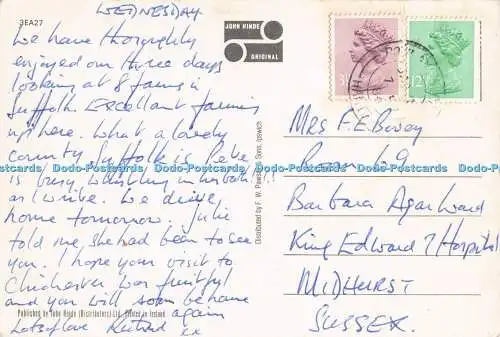 WEDNESDAY
3EA27
We have thoroughly
enjoyed our three days
looking at 8 farms in
Suffolk. Excellent farming
up here. What a lovely
county Suffolk is. Pete
is busy whistling in his bath
as I write. We drive
home tomorrow. Julie
told me she had been to see
you. I hope your visit to
Chichester was fruitful
and you will soon be home
again
Lots of love
xx
Published by John Hinde (Distributors) Ltd. Printed in Ireland
JOHN HINDE
ORIGINAL
Distributed by F. W. Pawsey & Sons, Ipswich
12½
Mrs F.E. Bovey
Room 69
Barbara Agar Ward
King Edward 7 Hospital
MIDHURST
SUSSEX.
Dodo-Postcards Dodo-Postcards Dodo-Postcards Dodo-Postcards
www.delcampe.net